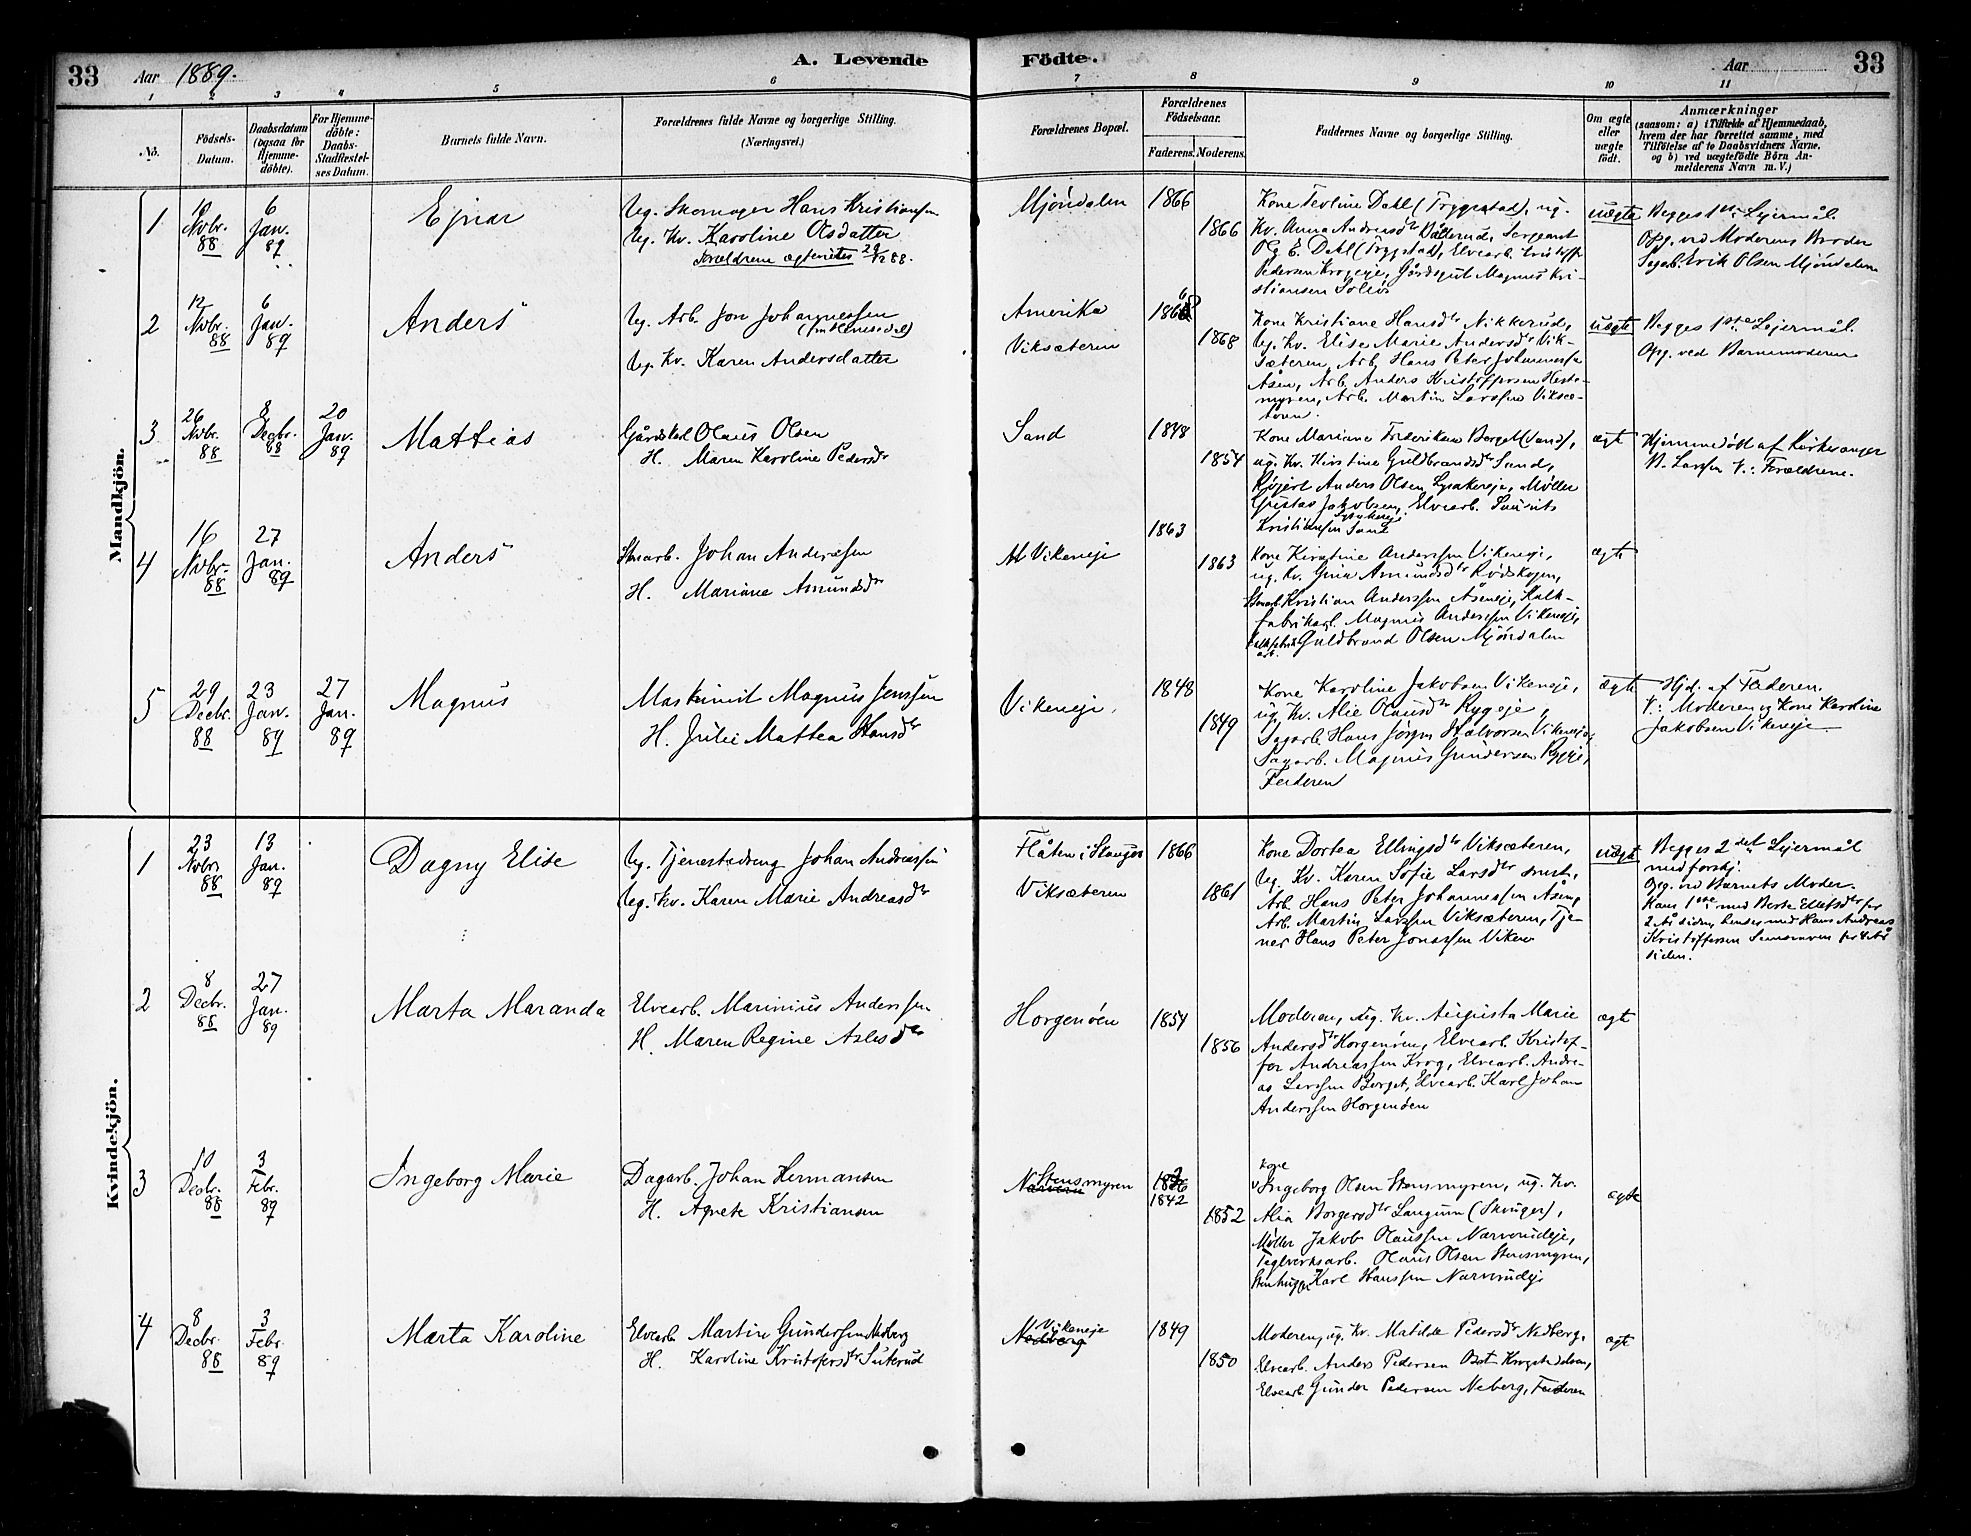 33 Aar 1889. A. Levende Födte. Aar 33
1 2 3 4 5 6 7 8 9 10 11
No.
Födsels-Datum.
Daabsdatum (ogsaa for Hjemmedöbte).
For Hjemmedöbte: Daabs-Stadfæstelses Datum.
Barnets fulde Navn.
Forældrenes fulde Navne og borgerlige Stilling.
(Næringsvei.)
Forældrenes Bopæl.
Forældrenes Födselsaar.
Faderens. Moderens.
Faddernes Navne og borgerlige Stilling.
Om ægte eller uægte födt.
Anmærkninger
(saasom: a) i Tilfælde af Hjemmedaab,
hvem der har forrettet samme, med
Tilföielse af to Daabsvidners Navne.
og b) ved uægtefödte Börn An-
melderens Navn m. V.)
Mandkjön.
1
10 Novbr. 88
6 Jan. 89
Ejnar
Ug. Skomager Hans Kristiansen
Ug. Kv. Karoline Olsdatter
Forældrene ægteviet 29/12 88.
Mjöndalen
1866
1866
Kone Teoline Dahl (Tryggestad), ug.
Kv. Anna Andreasdtr Sergeant
O. E. Dahl (Tryggstad), Elvearb. Kristoffer
Pedersen Krogeje, Gårdsgut Magnus Kri-
stiansen
uægte
Begges 1ste Lejermål.
Opg. ved Moderens Broder
Sagarb. Erik Olsen Mjöndalen
2
12 Novbr. 88
6 Jan. 89
Anders
Ug. Arb. Jon Johannessen
Ug. Kv. Karen Andersdatter
Amerika
Viksæteren
1868
Kone Kristiane Hansdtr Nikkerud,
Ug. Kv. Elise Marie Andersdtr Vik-
sæteren, Arb. Hans Peter Johannessen
Åsen, Arb. Anders Kristoffersen Heste-
myren, Arb. Martin Larssen Viksæ-
teren.
uægte
Begges 1ste Lejermål.
Opg. ved Barnemoderen
3
26 Novbr. 88
8 Decbr. 88
20 Jan. 89
Mattias
Gårdsbed Olaus Olsen
H. Maren Karoline Pedersdtr
Sand
1848
1854
Kone Mariane Frederiksen Berget (Sand),
ug. Kv. Kirstine Guldbrandsdtr Sand,
Anders Olsen Lysakereje, Møller
Gustav Jakobsen Elvearb. Laurits
Kristiansen Sand
ægte
Hjemmedöbt af Kirkesanger
B. Larssen V.: Forældrene.
4
16 Novbr. 88
27 Jan. 89
Anders
Stenarb. Johan Anderssen
H. Mariane Amundsdtr
Vikeneje
1863
1863
Kone Kirstine Anderssen Vikeneje,
ug. Kv. Gina Amundsdtr Rödskogen,
Stenarb Kristian Anderssen Åseneje, Kalk-
fabrikarb. Magnus Anderssen Vikeneje,
Kalkfabrikarb. Guldbrand Olsen Mjöndalen
ægte
5
29 Decbr. 88
23 Jan. 89
27 Jan. 89
Magnus
Maskinist Magnus Jenssen
H. Julie Mattea Hansdtr
Vikeneje.
1848
1849
Kone Karoline Jakobsen Vikeneje,
ug. Kv. Alie Olausdtr Rygeje,
Sagarb. Hans Jørgen Halvorsen Vikeneje,
Sagarb. Magnus Gundersen Rygeje,
Faderen
ægte
Hjd. af Faderen.
V.: Moderen og Kone Karoline
Jakobsen Vikeneje
Kvindekjön.
1
23 Novbr. 88
13 Jan. 89
Dagny Elise
Ug. Tjenestedreng Johan Andreassen
Ug. Kv. Karen Marie Andreasdtr
Flåten i Skauger
Viksæteren
1866
1861
Kone Dortea Ellingsdtr Viksæteren,
Ug. Kv. Karen Sofie Larsdtr smst.,
Arb. Hans Peter Johannessen Åsen,
Arb. Martin Larssen Viksæteren, Tje-
ner Hans Peter Jonassen Viken
uægte
Begges 2det Lejermål
med forskj.
Opg. ved Barnets Moder.
Hans 1ste med Berte Ellefsdtr for
2 År siden, hendes med Hans Andreas
Kristoffersen for 4 År
siden.
2
8 Decbr. 88
27 Jan. 89
Marta Maranda
Elvearb. Marinius Anderssen
H. Maren Regine Axlesdtr
Horgenöen
1854
1856
Moderen, ug. Kv. Augusta Marie
Andersdtr Horgenöen, Elvearb. Kristof-
fer Andreassen Krog, Elvearb. Andre-
as Larssen Berget, Elvearb. Karl Johan
Anderssen Horgenöen
ægte
3
10 Decbr. 88
3 Febr. 89
Ingeborg Marie
Dagarb. Johan Hermansen
H. Agnete Kristiansen
Stensmyren
1842
1852
Kone
Ingeborg Olsen Stensmyren, ug. Kv.
Alia Borgersdtr Langum (Skauger),
Møller Jakob Olaussen Narverudeje,
Teglverksarb. Olaus Olsen Stensmyren,
Stenhugger Karl Hanssen Narverudeje
ægte
4
8 Decbr. 88
3 Febr. 89
Marta Karoline
Elvearb. Martin Gundersen Nedberg
H. Karoline Kristofersdtr Suterud
Vikeneje
Nedberg
1849
1850
Moderen, ug. Kv. Matilde Pedersdtr Nedberg,
Elvearb. Anders Pedersen Öst Krogstadelven,
Elvearb Gunder Pedersen Neberg, Faderen
ægte